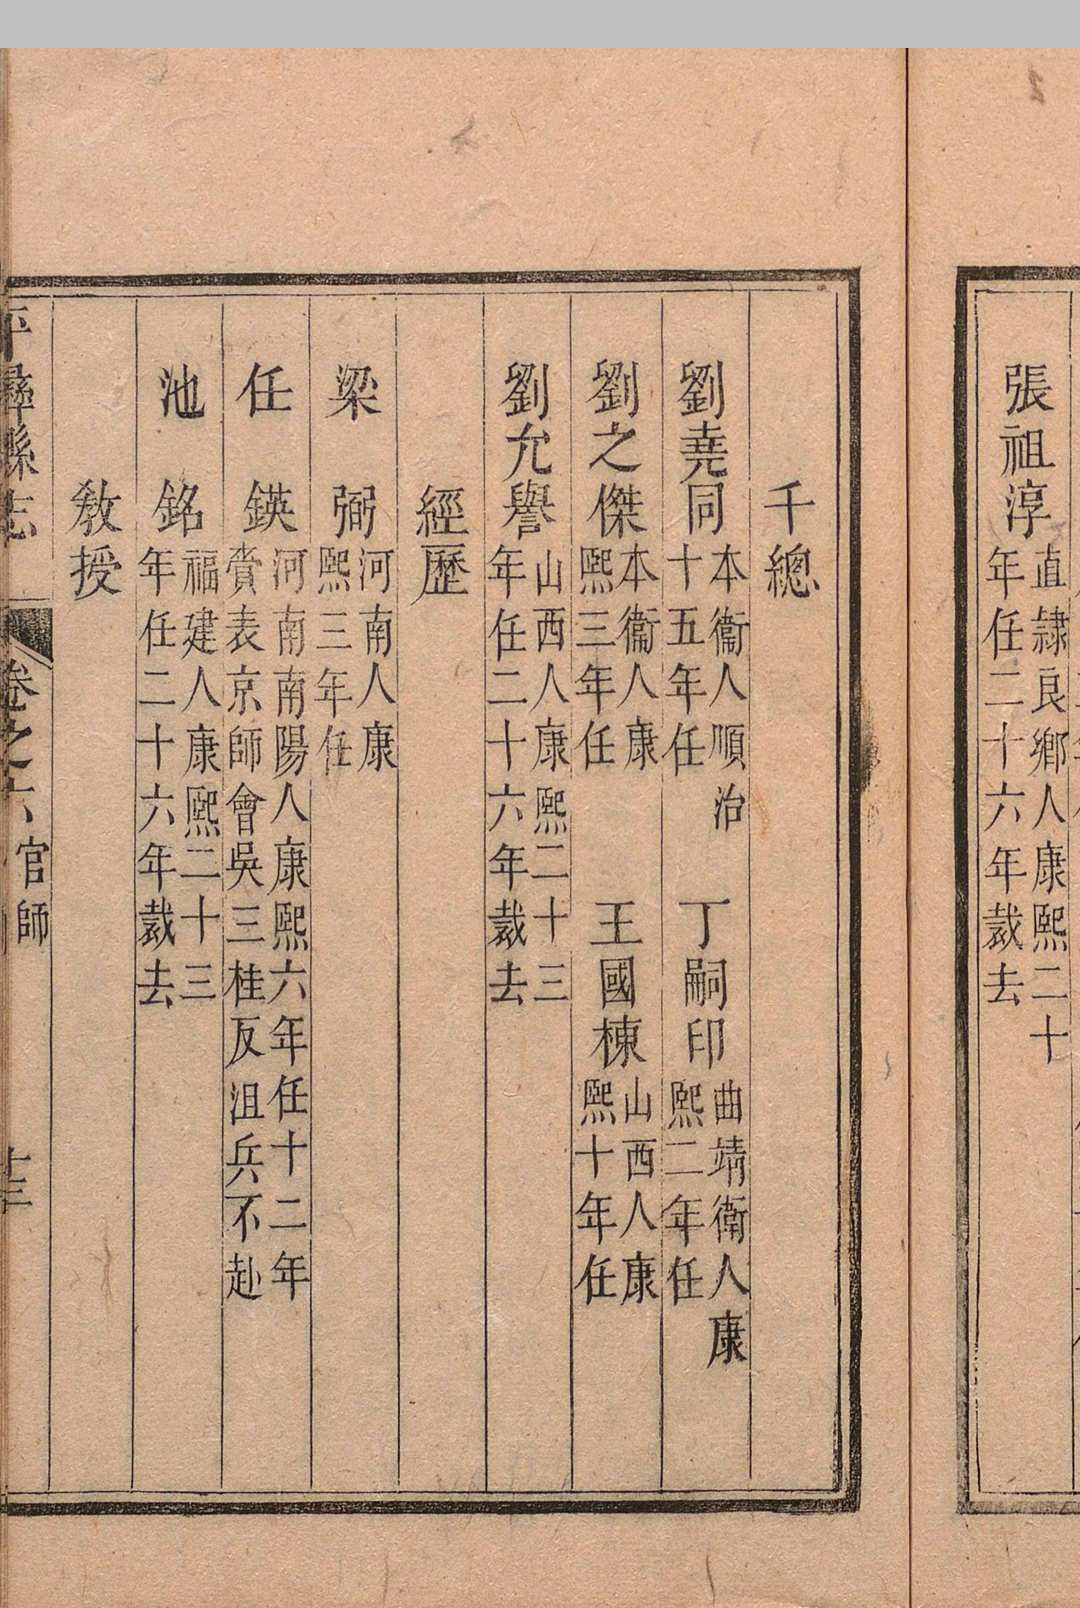 張祖淳直隷良鄉人康熙二十
年任二十六年裁去
千總
劉堯同本衞人順治
十五年任
丁嗣印曲靖衛人康
熙二年任
劉之傑本衞人康
熙三年任
王國棟山西人康
熙十年任
劉允譽山西人康熙二十三
年任二十六年裁去
經歷
梁弼河南人康
熙三年任
任鍈河南南陽人康熙六年任十二年
賫表京師會吳三桂反沮兵不赴
池銘福建人康熙二十三
年任二十六年裁去
敎授
平彝縣志
卷之六官師
十三